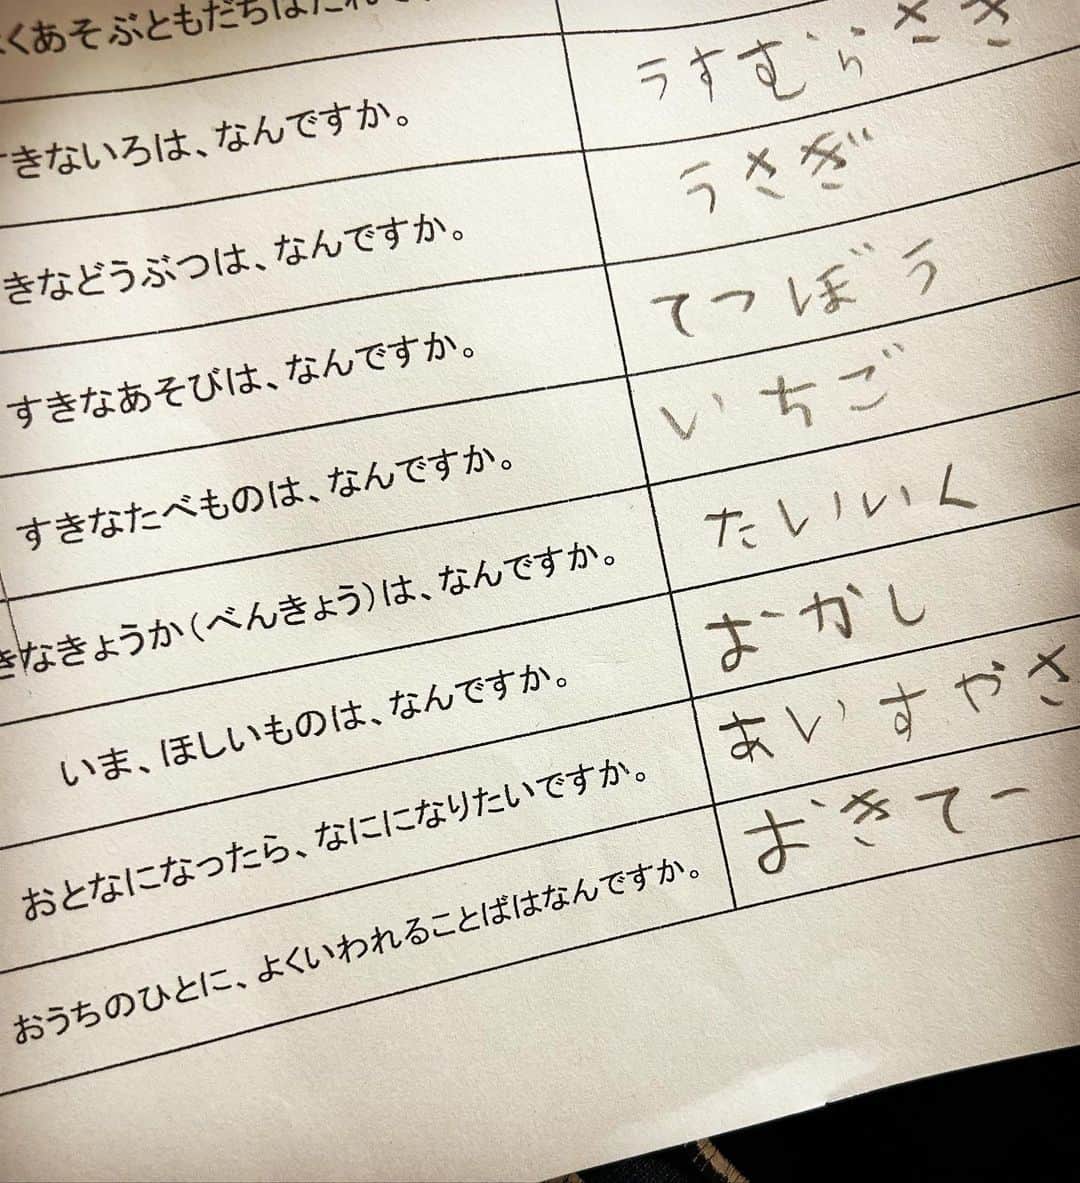 くあそぶともだちは
きないろは、なんですか。 うすむらさき
きなどうぶつは、なんですか。 うさぎ
すきなあそびは、なんですか。 てつぼう
すきなたべものは、なんですか。 いちご
きなきょうか(べんきょう)は、なんですか。 たいいく
いま、ほしいものは、なんですか。 おかし
おとなになったら、なにになりたいですか。 あいすやさ
おうちのひとに、よくいわれることばはなんですか。 おきてー